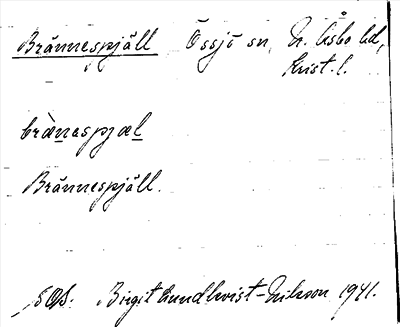 Brännespjäll Össjö sn, N. Åsbo hd,
Krist. l.
brä̀nespjæl
Brännespjäll.
SOA. Birgit Lundkvist-Nilsson 1941.